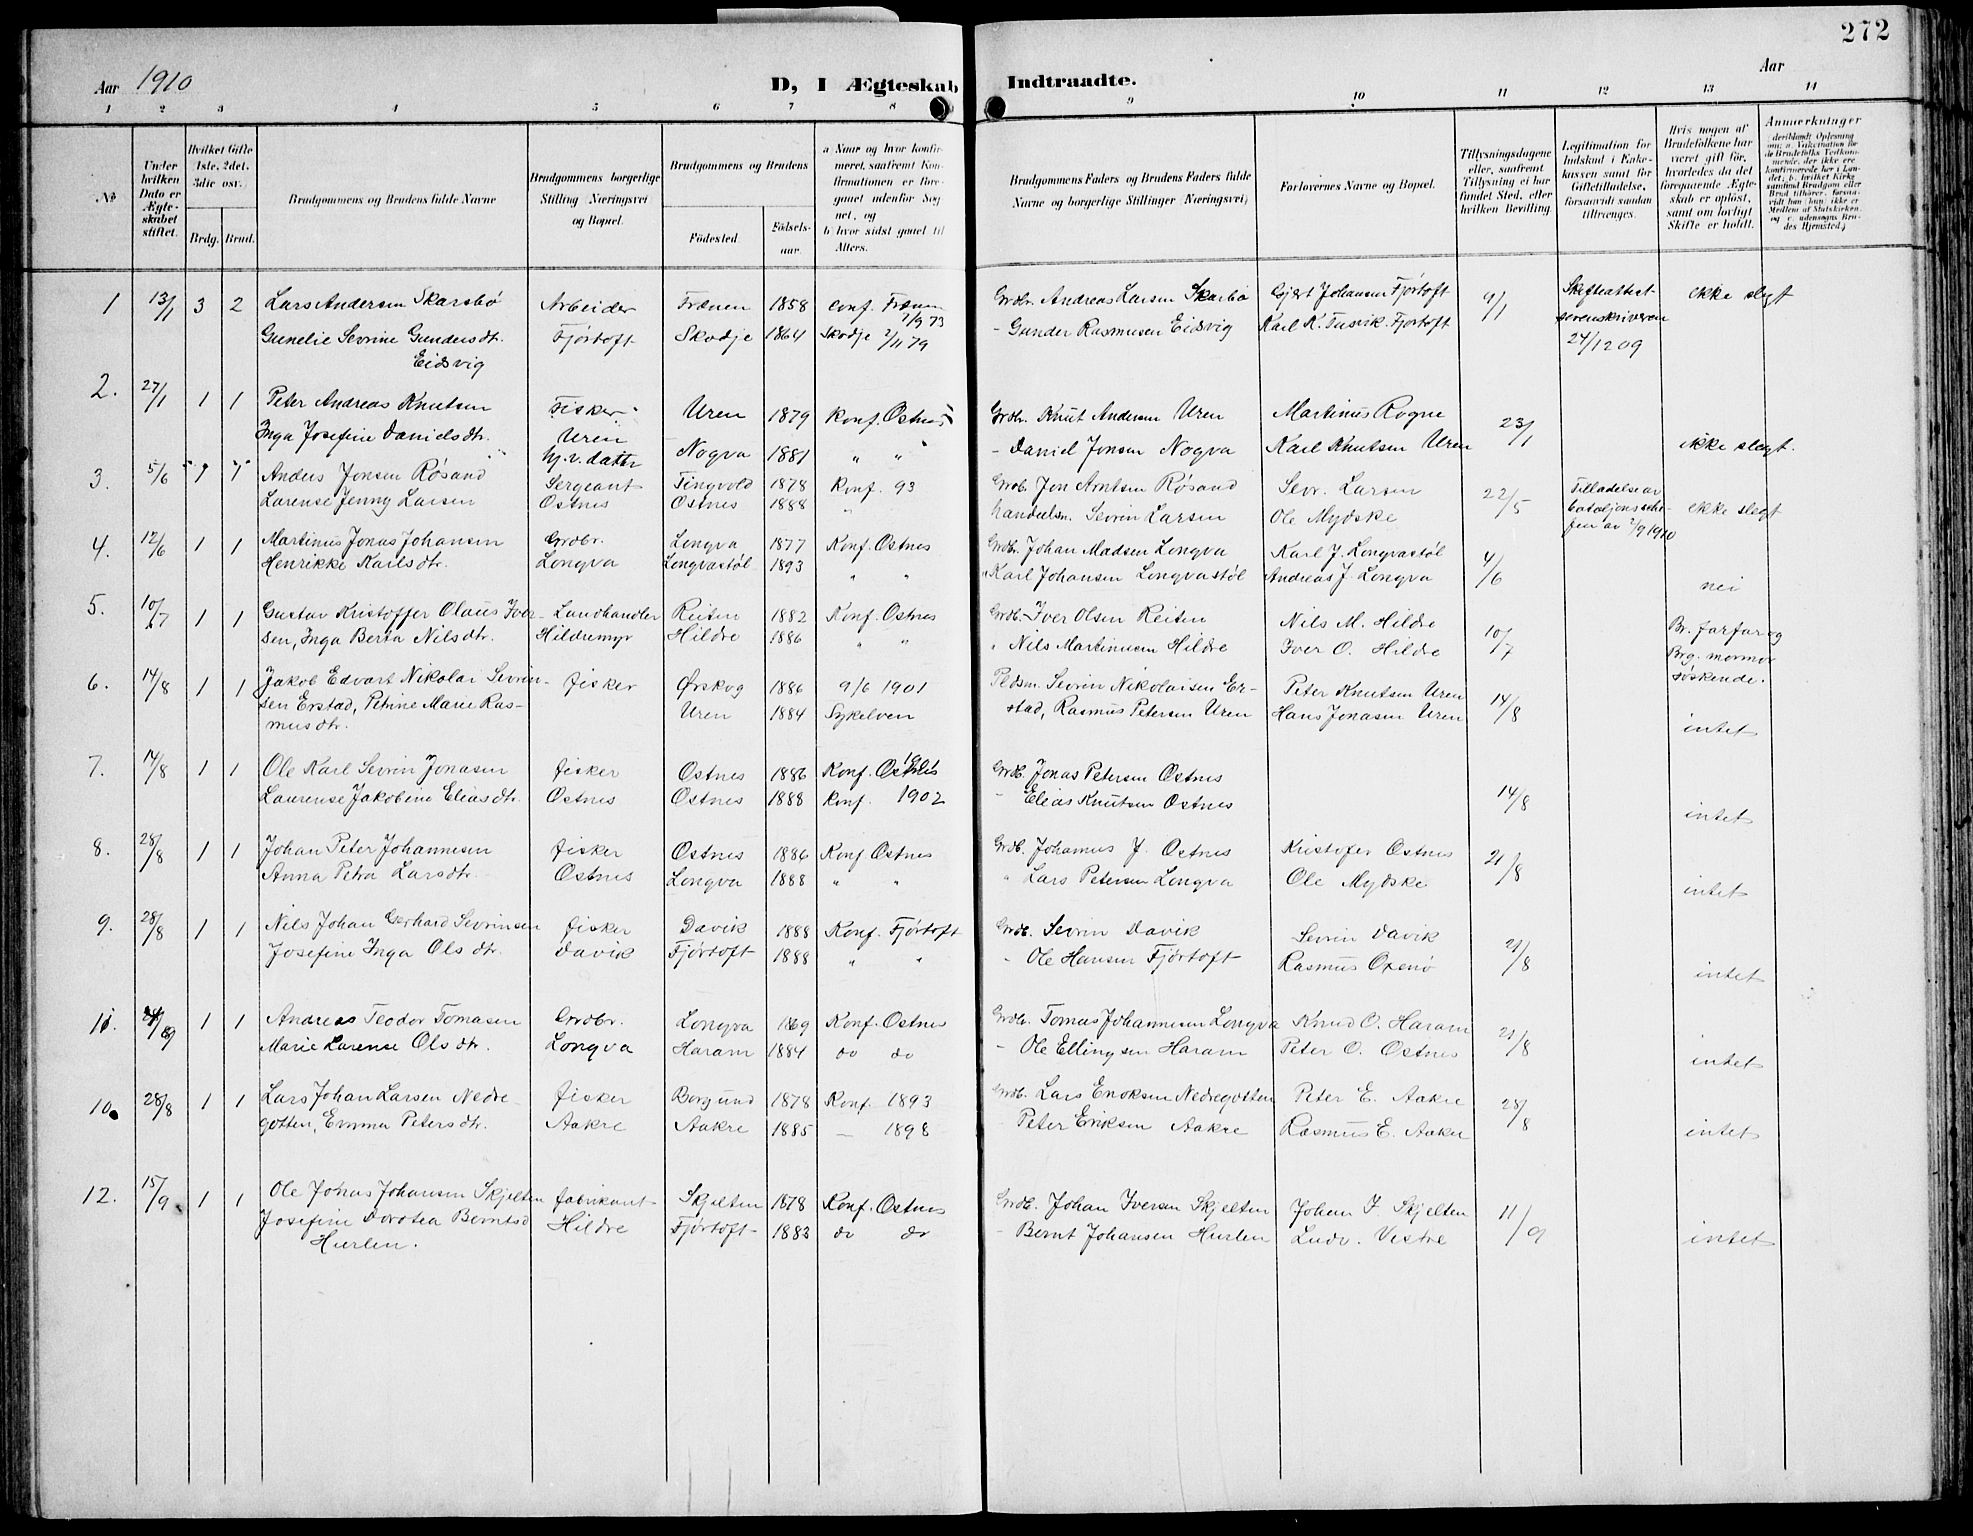 272
Aar 1910
D, I Ægteskab Indtraadte.
Aar
1 2 3 4 5 6 7 8 9 10 11 12 13 14
№
Under hvilken Dato er Ægteskabet stiftet.
Hvilket Gifte 1ste, 2det, 3die osv.
Brdg. Brud.
Brudgommens og Brudens fulde Navne
Brudgommens borgerlige Stilling Næringsvei og Bopæl.
Brudgommens og Brudens
Fødested.
Fødselsaar.
a Naar og hvor konfirmeret, saafremt Konfirmationen er foregaaet udenfor Sognet, og
b hvor sidst gaaet til Alters.
Brudgommens Faders og Brudens Faders fulde Navne og borgerlige Stillinger Næringsvei)
Forlovernes Navne og Bopæl.
Tillysningsdagene eller, saafremt Tillysning ei har fundet Sted, efter hvilken Bevilling.
Legitimation for Indskud i Enkekassen samt for Giftetilladelse, forsaavidt saadan tiltrænges.
Hvis nogen af Brudefolkene har været gift før, hvorledes da det foregaaende Ægteskab er opløst, samt om lovligt Skifte er holdt.
Anmærkninger
1 13/1 3 2 Lars Andersen Skarsbø Arbeider Frænen 1858 conf. Frænen 1/9 73 Grdbr. Andreas Larsen Skarbø Gjert Johansen Fjørtoft 9/1 Skifteattest ikke slegt
Gunelie Sevrine Gundersdtr. Fjørtoft Skodje 1864 Skodje 2/11 79 - Gunder Rasmusen Eidsvig Karl K. Fjørtoft sorenskriveren
Eidsvig 24/12 09
2. 27/1 1 1 Peter Andreas Knutsen Fisker Uren 1879 Konf. Ostnes Grdb. Knut Andersen Uren Martinus Rogne 23/1
Inga Josefine Danielsdtr. Uren Nogva 1881 " " - Daniel Jonsen Nogva Karl Knutsen Uren ikke slegt.
hj. v. datter
3. 5/6 1 1 Anders Jonsen Røsand Sergeant Tingvold 1878 Konf. 93 Grdb. Jon Arntsen Røsand Sevr. Larsen 22/5 Tilladelse av ikke slegt
Larense Jenny Larsen Ostnes Ostnes 1888 " handelsm. Sevrin Larsen Ole Mydske
4. 12/6 1 1 Martinus Jonas Johansen Grdbr. Longva 1877 Konf. Ostnes Grdb. Johan Madsen Longva Karl J. Longvastøl 4/6
Henrikke Karlsdtr. Longva Longvastøl 1893 " " " Karl Johansen Longvastøl Andreas J. Longva nei
5. 10/7 1 1 Gustav Kristoffer Olaus Iver- Landhandler Reiten 1882 Konf. Ostnes Grdb. Iver Olsen Reiten Nils M. Hildre 10/7 Br. farfar og
sen, Inga Berta Nilsdtr. Hildremyr Hildre 1886 " " Nils Martinusen Hildre Iver O. Hildre Brg. mormor
søskende.
6. 14/8 1 1 Jakob Edvart Nikolai Sevrin- fisker Ørskog 1886 9/6 1901 Pldsm. Sevrin Nikolaisen Er- Peter Knutsen Uren 14/8
sen Erstad, Petrine Marie Ras- Uren 1884 Sykelven stad, Rasmus Petersen Uren Hans Jonasen Uren intet
musdtr.
7. 14/8 1 1 Ole Karl Sevrin Jonasen fisker Ostnes 1886 Konf. Ostnes Grdb. Jonas Petersen Ostnes 14/8
Laurense Jakobine Eliasdtr. Ostnes Ostnes 1888 konf. 1902 - Elias Knutsen Ostnes intet
8. 28/8 1 1 Johan Peter Johannesen fisker Ostnes 1886 Konf. Ostnes Grdb. Johannes J. Ostnes Kristofer Ostnes 21/8
Anna Petra Larsdtr. Ostnes Longva 1888 " " " Lars Petersen Longva Ole Mydske intet
9. 28/8 1 1 Nils Johan Gerhard Sevrinsen fisker Davik 1888 Konf. Fjørtoft Grdb. Sevrin Davik Sevrin Davik 21/8
Josefine Inga Olsdtr. Davik Fjørtoft 1888 " " - Ole Hansen Fjørtoft Rasmus Oxenø intet
11. 1 1 Andreas Teodor Tomasen Grdbr. Longva 1869 Konf. Ostnes Grdb. Tomas Johannesen Longva Knud O. Haram 21/8
Marie Larense Olsdtr. Longva Haram 1884 do do - Ole Ellingsen Haram Peter O. Ostnes intet
10. 28/8 1 1 Lars Johan Larsen Nedre- fisker Borgund 1878 Konf. 1893 Grdb. Lars Enoksen Nedregotten Peter E. Aakre 28/8
gotten, Emma Petersdtr. Aakre Aakre 1885 — 1898 - Peter Eriksen Aakre Rasmus E. Aakre intet
12. 15/9 1 1 Ole Jonas Johansen Skjelten fabrikant Skjelten 1878 Konf. Ostnes Grdb. Johan Iversen Skjelten Johan I. Skjelten 11/9
Josefine Dorotea Berntsd Hildre Fjørtoft 1883 do do - Bernt Johansen Hurlen Ludv. Vestre intet
Hurlen.